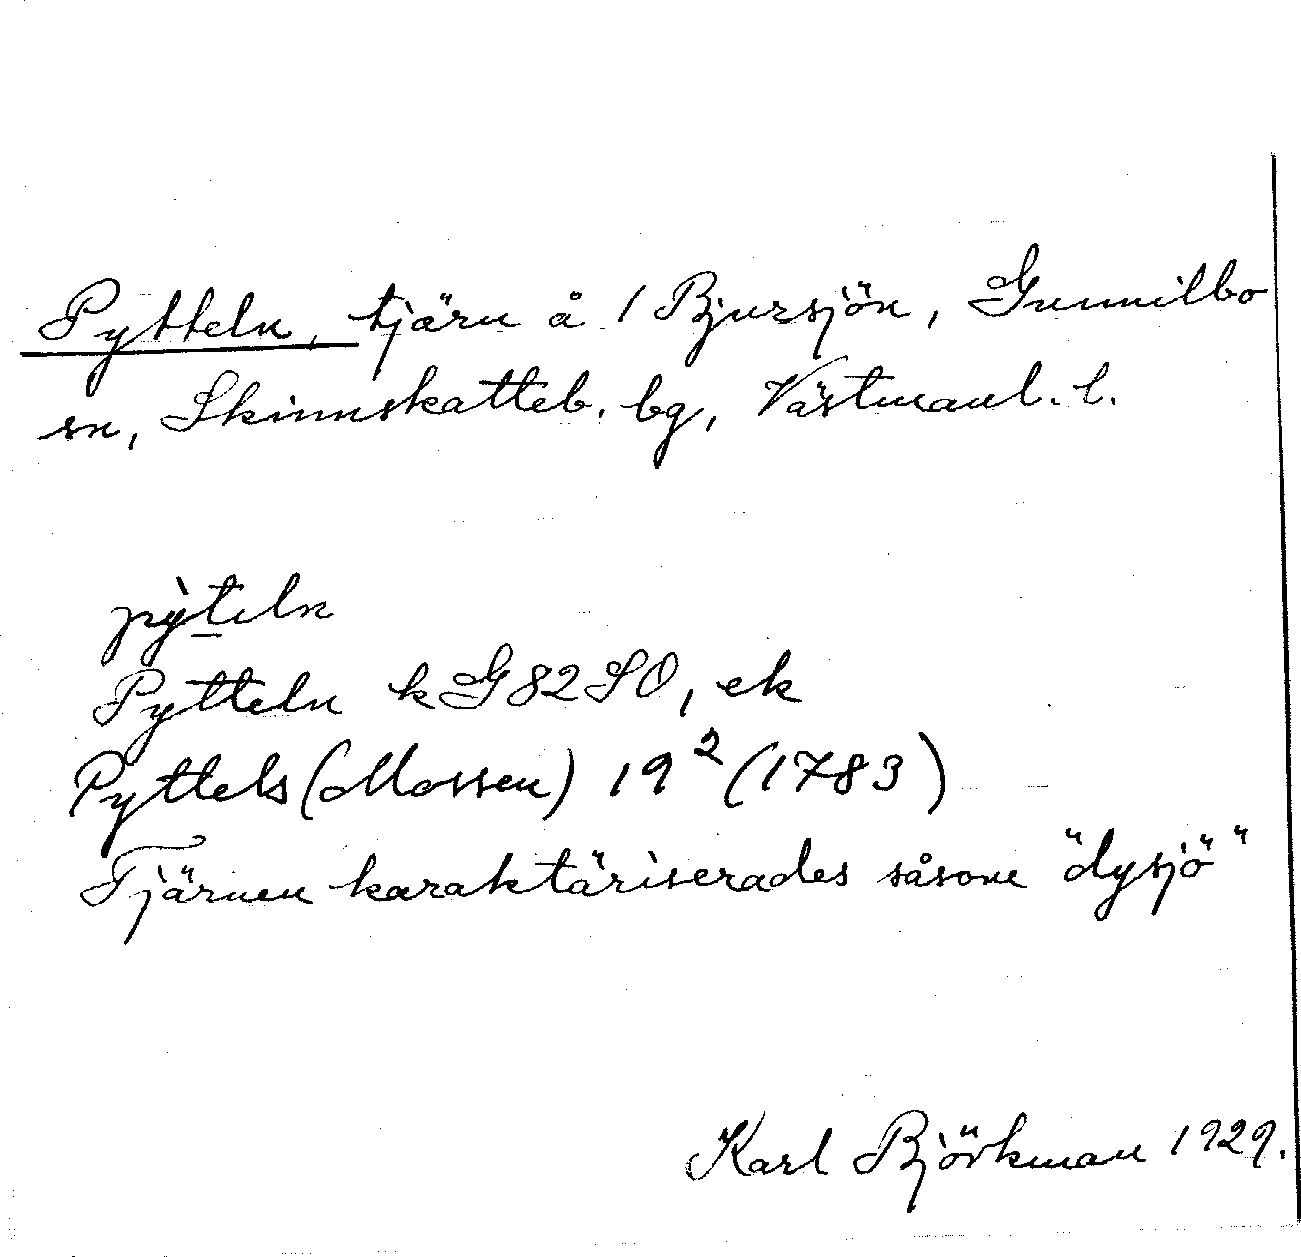 Pytteln, tjärn å 1 Bjursjön, Gunnilbo
sn, Skinnskatteb. bg, Västmanl. l.
pỳteln
Pytteln kG82SO, ek
Pyttels (Mossen) 19² (1783)
Tjärnen karaktäriserades såsom "dysjö"
Karl Björkman 1929.